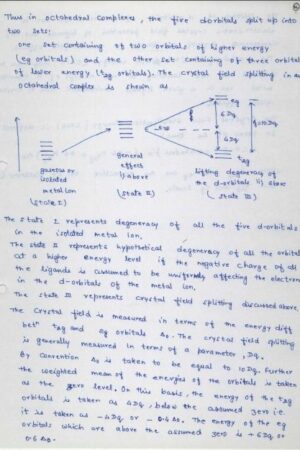 Thus in octahedral complexes, the five d-orbitals split up into
two sets:
one set containing of two orbitals of higher energy
(eg orbitals) and the other set containing of three orbital
of lower energy (t2g orbitals). The crystal field splitting in
octahedral complex is shown as
eg
6Dq
Δ=10Dq
4Dq
t2g
gaseous or
isolated
metal ion
(State I)
general
effect
i) above
(State II)
lifting degeneracy of
the d-orbitals ii) above
(State III)
The state I represents degeneracy of all the five d-orbitals
in the isolated metal ion.
The state II represents hypothetical degeneracy of all the orbitals
at a higher energy level if the negative charge of all
the ligands is assumed to be uniformly affecting the electrons
in the d-orbitals of the metal ion.
The state III represents crystal field splitting discussed above.
The crystal field is measured in terms of the energy diff
betn t2g and eg orbitals Δo. The crystal field splitting
is generally measured in terms of a parameter, Dq.
By convention Δo is taken to be equal to 10Dq. Further
the weighted mean of the energies of the orbitals is taken
as the zero level. On this basis, the energy of the t2g
orbitals is taken as 4Dq, below the assumed zero i.e.
it is taken as -4Dq or -0.4Δo. The energy of the eg
orbitals which are above the assumed zero is +6Dq or
0.6Δo.